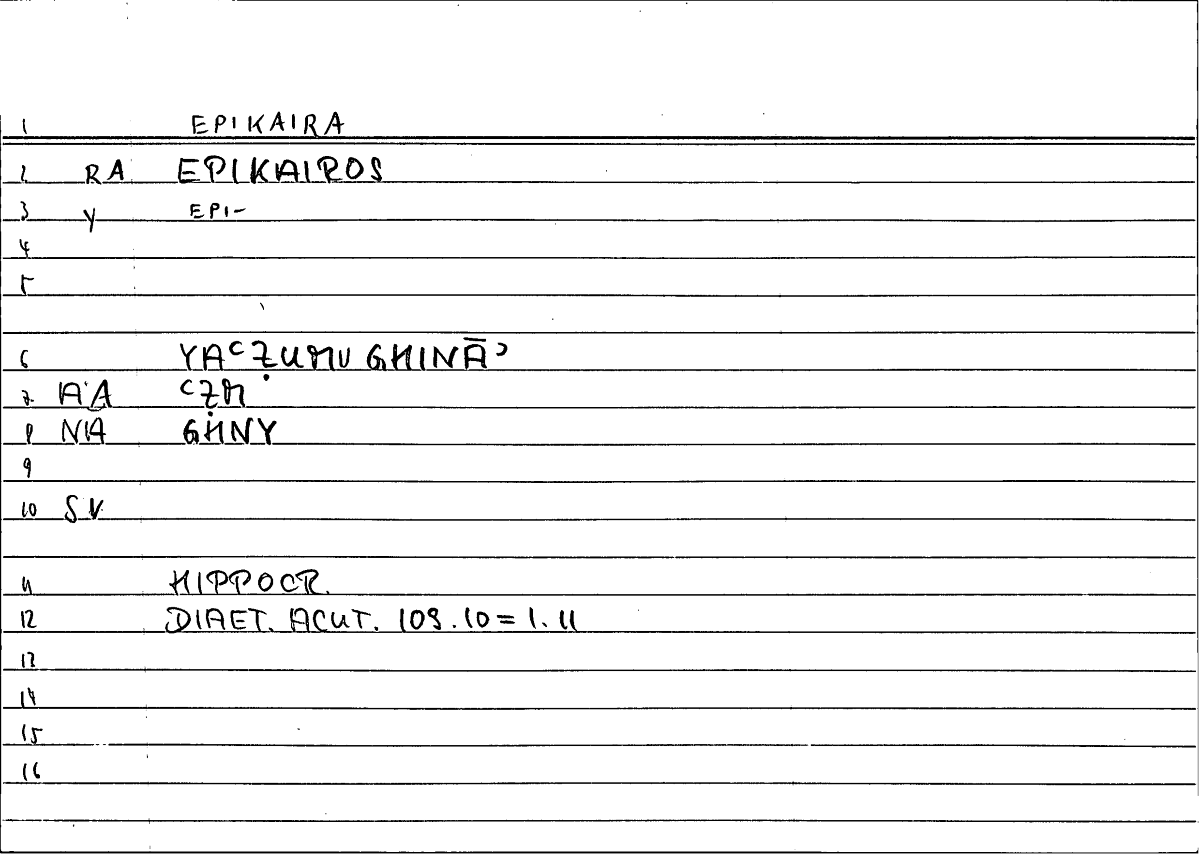 1 EPIKAIRA
2 RA EPIKAIROS
3 Y EPI-
4
5
6 YAʿẒUMU GHINĀʾ
7 AA ʿẒM
8 NA ĠHNY
9
10 SV
11 HIPPOCR.
12 DIAET. ACUT. 109.10 = 1.11
13
14
15
16